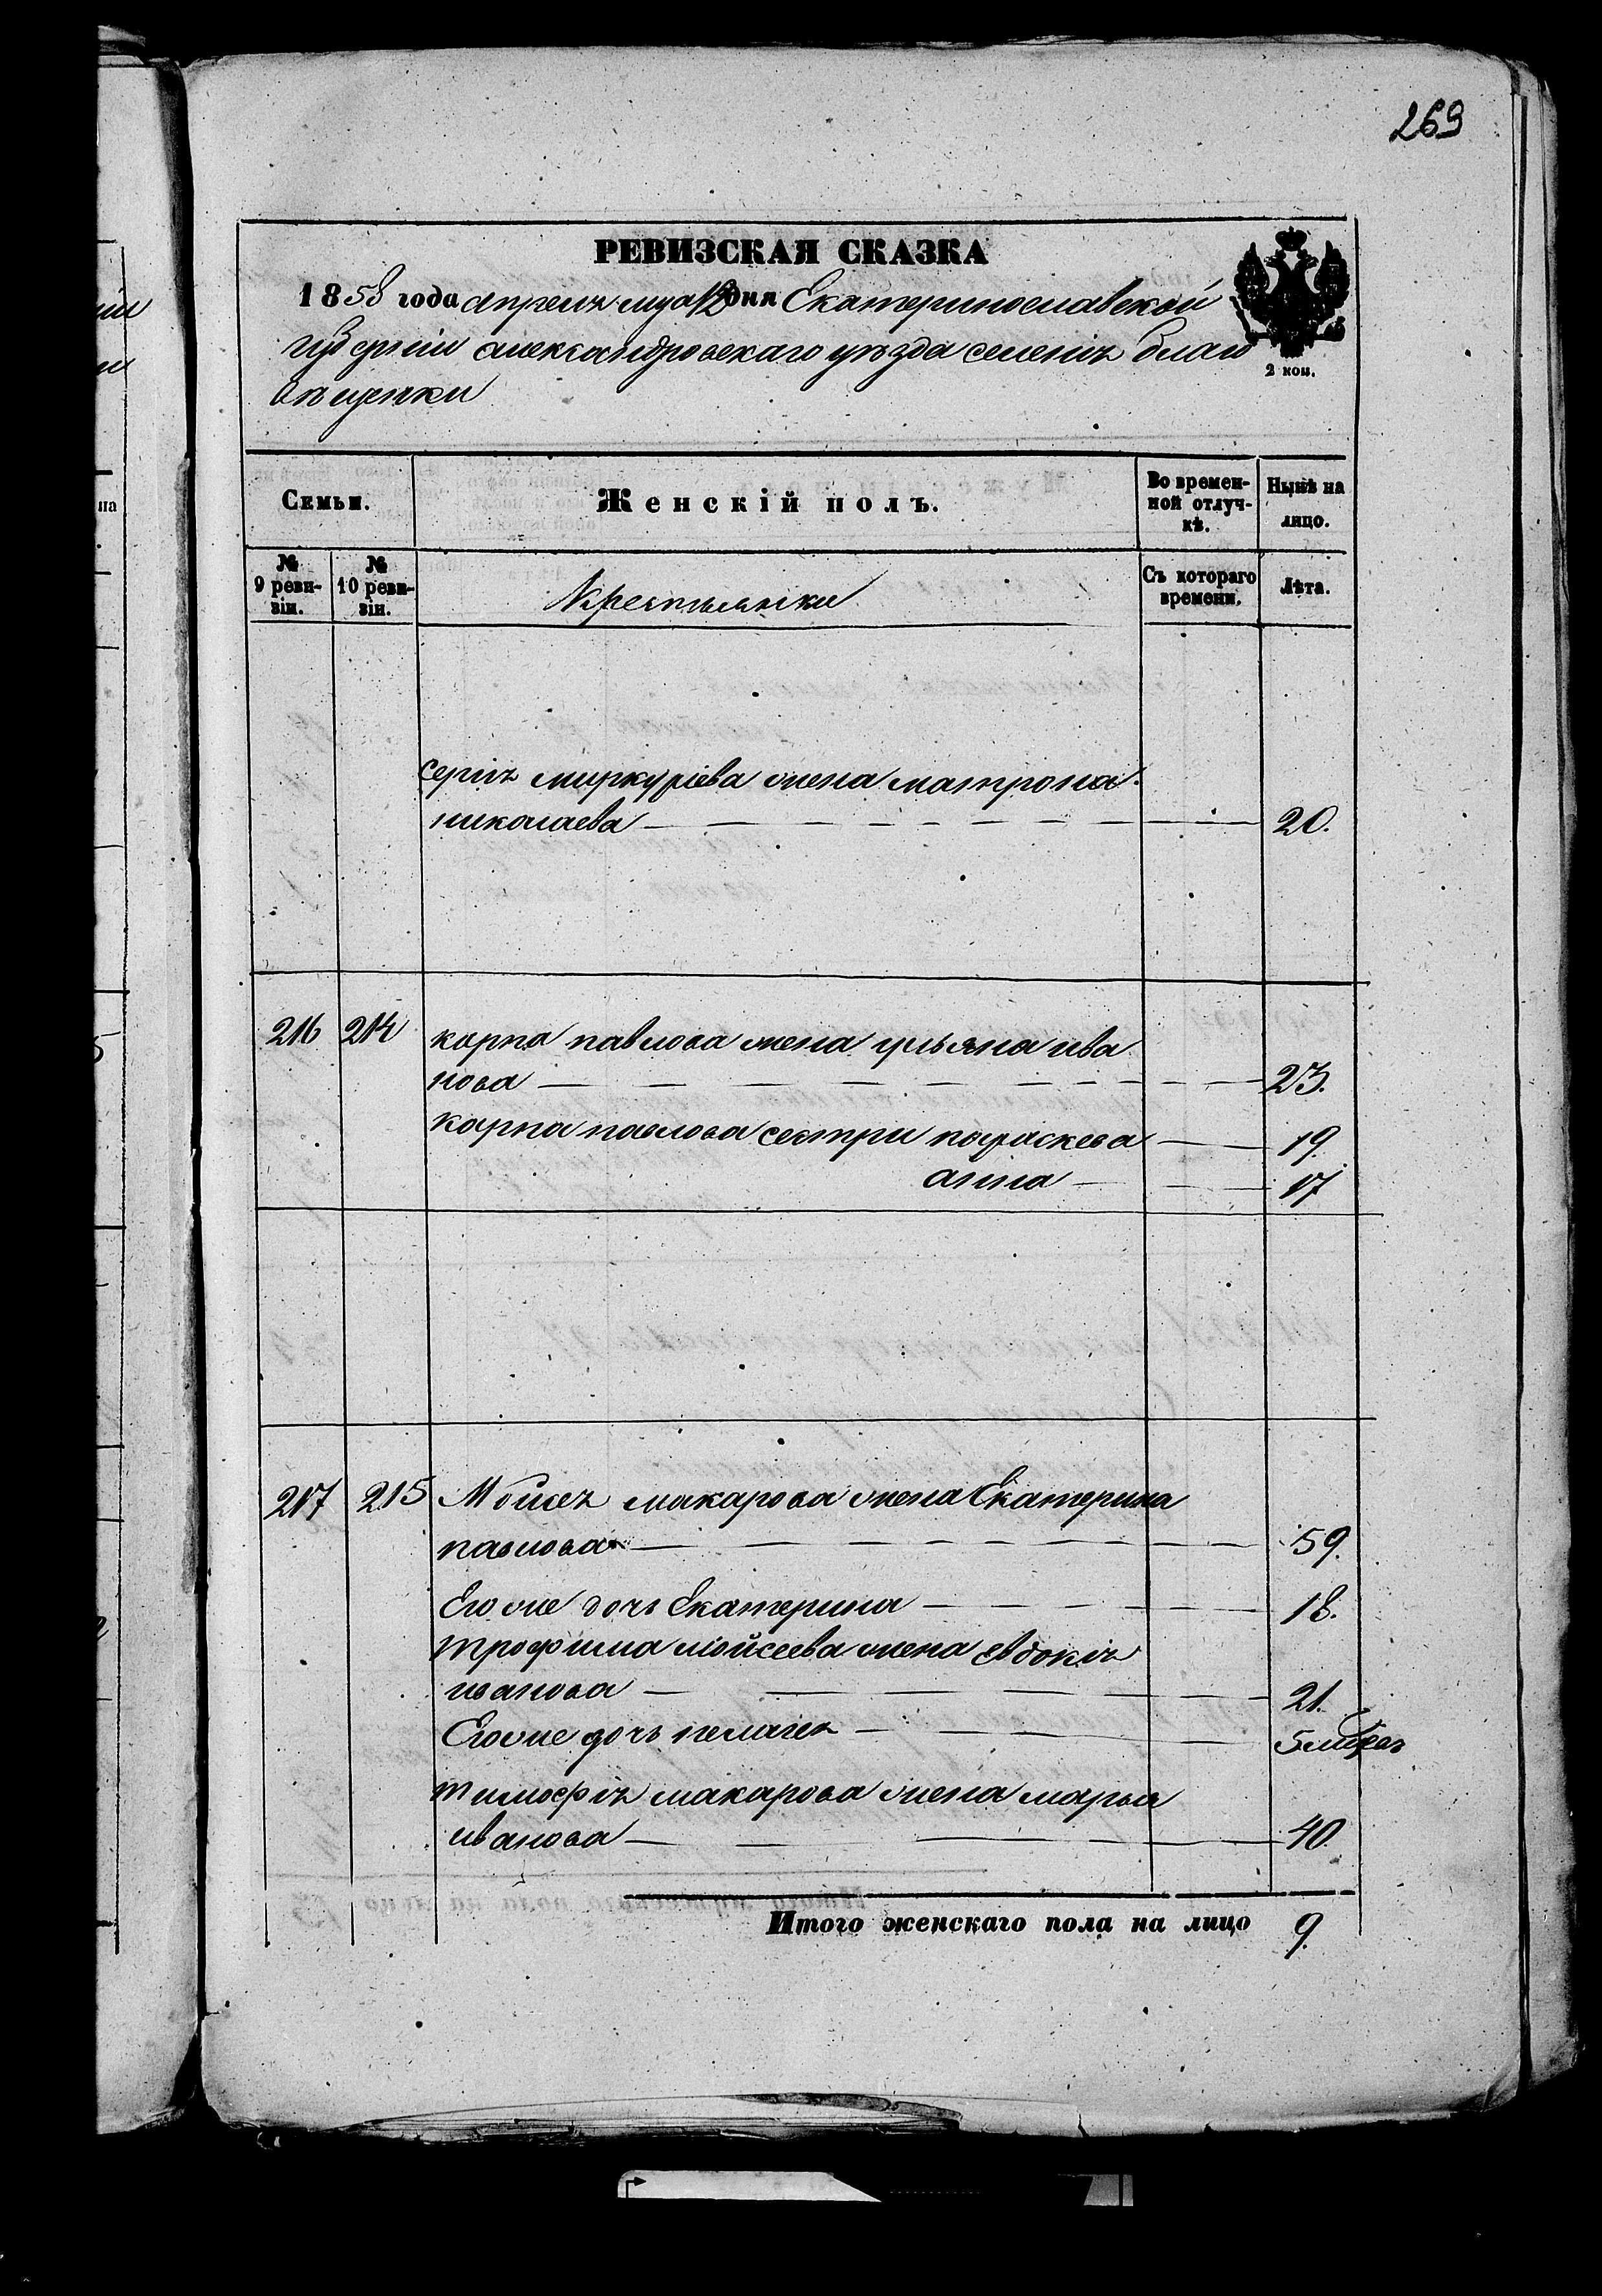 269
РЕВИЗСКАЯ СКАЗКА
1858 года апреля мца 12 дня Екатеринославской
губернии александровскаго уѣзда селенія благо
вѣщенки
2 коп.
Семьи.
Женскій полъ.
Во времен-
ной отлуч-
кѣ.
Нынѣ на
лицо.
№
9 реви-
зіи.
№
10 реви-
зіи.
Крестьянки
Съ котораго
времени.
Лѣта.
Сергія миркуріева жена матрона
николаева 20.
216 214 карпа павлова жена ульяна ива
нова 23.
карпа павлова сестри параскева 19.
анна 17
217 215 Мойсея макарова жена Екатерина
павлова 59.
Его же дочь Екатерина 18.
трофима мойсеева жена евдокія
иванова 21.
Его же дочь пелагея 5 месяц
тимофія макарова жена марья
иванова 40.
Итого женскаго пола на лицо 9.